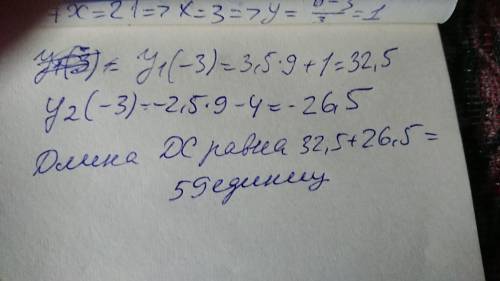 7x=21=>x=3=>y=(6-3)/3=1
y₁(-3)=3,5·9+1=32,5
y₂(-3)=-2,5·9-4=-26,5
Длина DC равна 32,5+26,5=
59 единиц